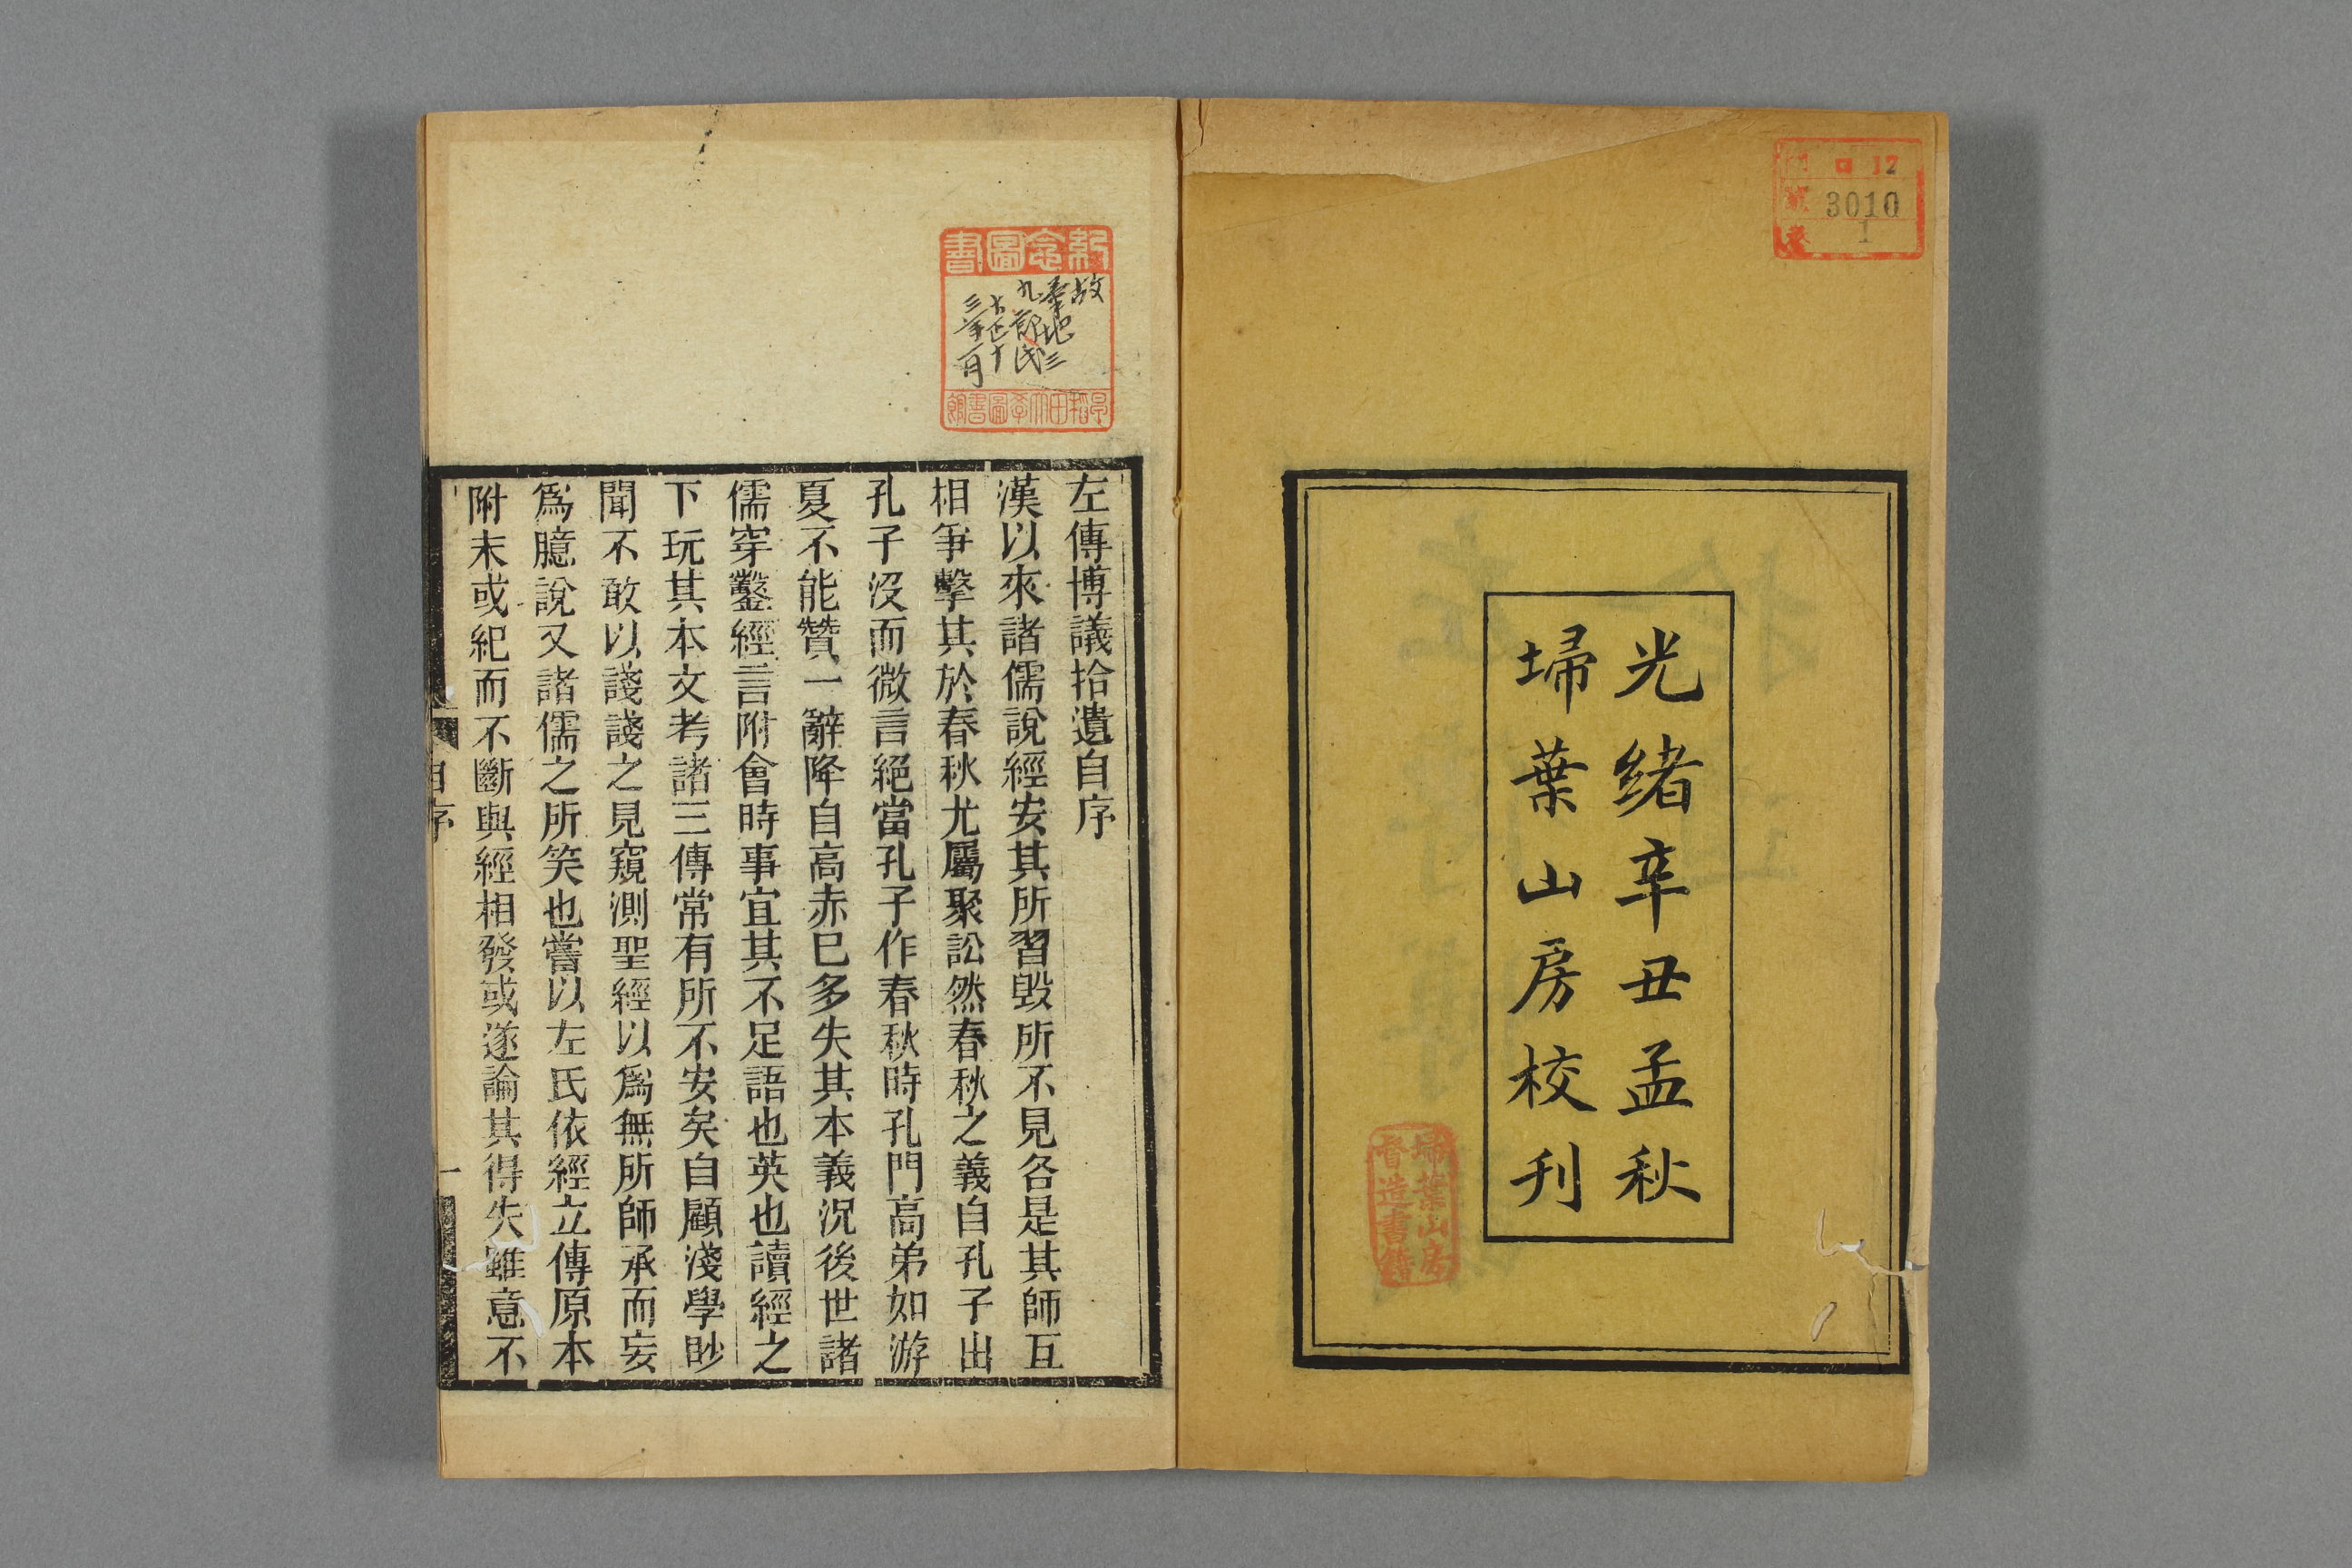 光緒辛丑孟秋
埽葉山房校刊
埽葉山房
督造書籍
口12
3010
1
紀念圖書
故
菊地三
九郎氏
大正十
三年一月
早稻田大學圖書館
左傳博議拾遺自序
漢以來諸儒說經安其所習毀所不見各是其師互
相爭擊其於春秋尤屬聚訟然春秋之義自孔子出
孔子沒而微言絕當孔子作春秋時孔門高弟如游
夏不能贊一辭降自高赤已多失其本義況後世諸
儒穿鑿經言附會時事宜其不足語也英也讀經之
下玩其本文考諸三傳常有所不安矣自顧淺學眇
聞不敢以諓諓之見窺測聖經以爲無所師承而妄
爲臆說又諸儒之所笑也嘗以左氏依經立傳原本
附末或紀而不斷與經相發或遂論其得失雖意不
自序
一